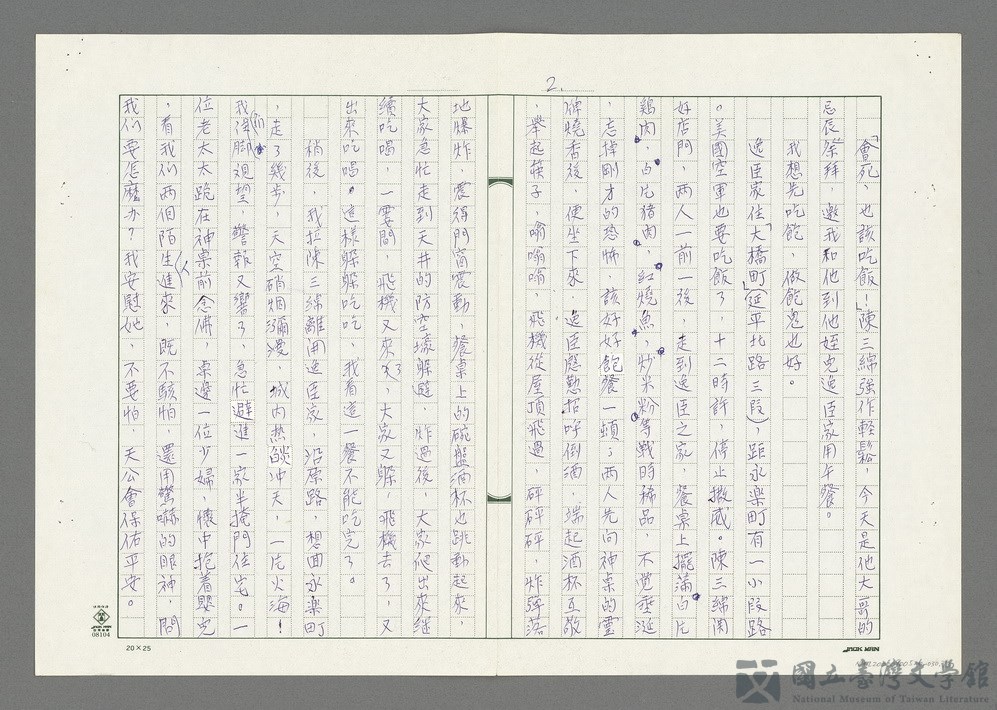 2.
「會死,也該吃飯!」陳三綿強作輕鬆,今天是他大哥的
忌辰祭拜,邀我和他到他姪兒逸臣家用午餐。
我想先吃飽,做飽鬼也好。
逸臣家住「大橋町」(延平北路三段),距永樂町有一小段路
。美國空軍也要吃飯了,十二時許,停止撒威。陳三綿関
好店門,兩人一前一後,走到逸臣之家,餐桌上擺滿白片
鷄肉、白片猪肉、紅燒魚、炒米粉等戰時稀品,不覺垂涎
,忘掉剛才的恐怖,該好好飽餐一頓;兩人先向神桌的靈
牌燒香後,便坐下來,逸臣慇懃招呼倒酒,端起酒杯互敬
,舉起筷子,嗡嗡嗡,飛機從屋頂飛過,砰砰砰,炸彈落
地爆炸,震得門窗震動,餐桌上的碗盤酒杯也跳動起來,
大家急忙走到天井的防空壕躲避,炸過後,大家爬出來継
續吃喝,一霎間,飛機又來了,大家又躲,飛機去了,又
出來吃喝。這樣躲躲吃吃,我看這一餐不能吃完了。
稍後,我拉陳三綿離開逸臣家,沿原路,想回永樂町
,走了幾步,天空硝烟瀰漫,城内热燄冲天,一片火海!
我停脚观望,警報又響了,急忙避進一家半掩門住宅。一
位老太太跪在神桌前念佛,桌邊一位少婦,懷中抱着嬰兒
,看我們两個陌生人進來,既不駭怕,還用驚嚇的眼神,問
我们要怎麼办?我安慰她,不要怕,天公會保佑平安。
08104
20×25
JACK MAN
國立臺灣文學館
National Museum of Taiwan Literature